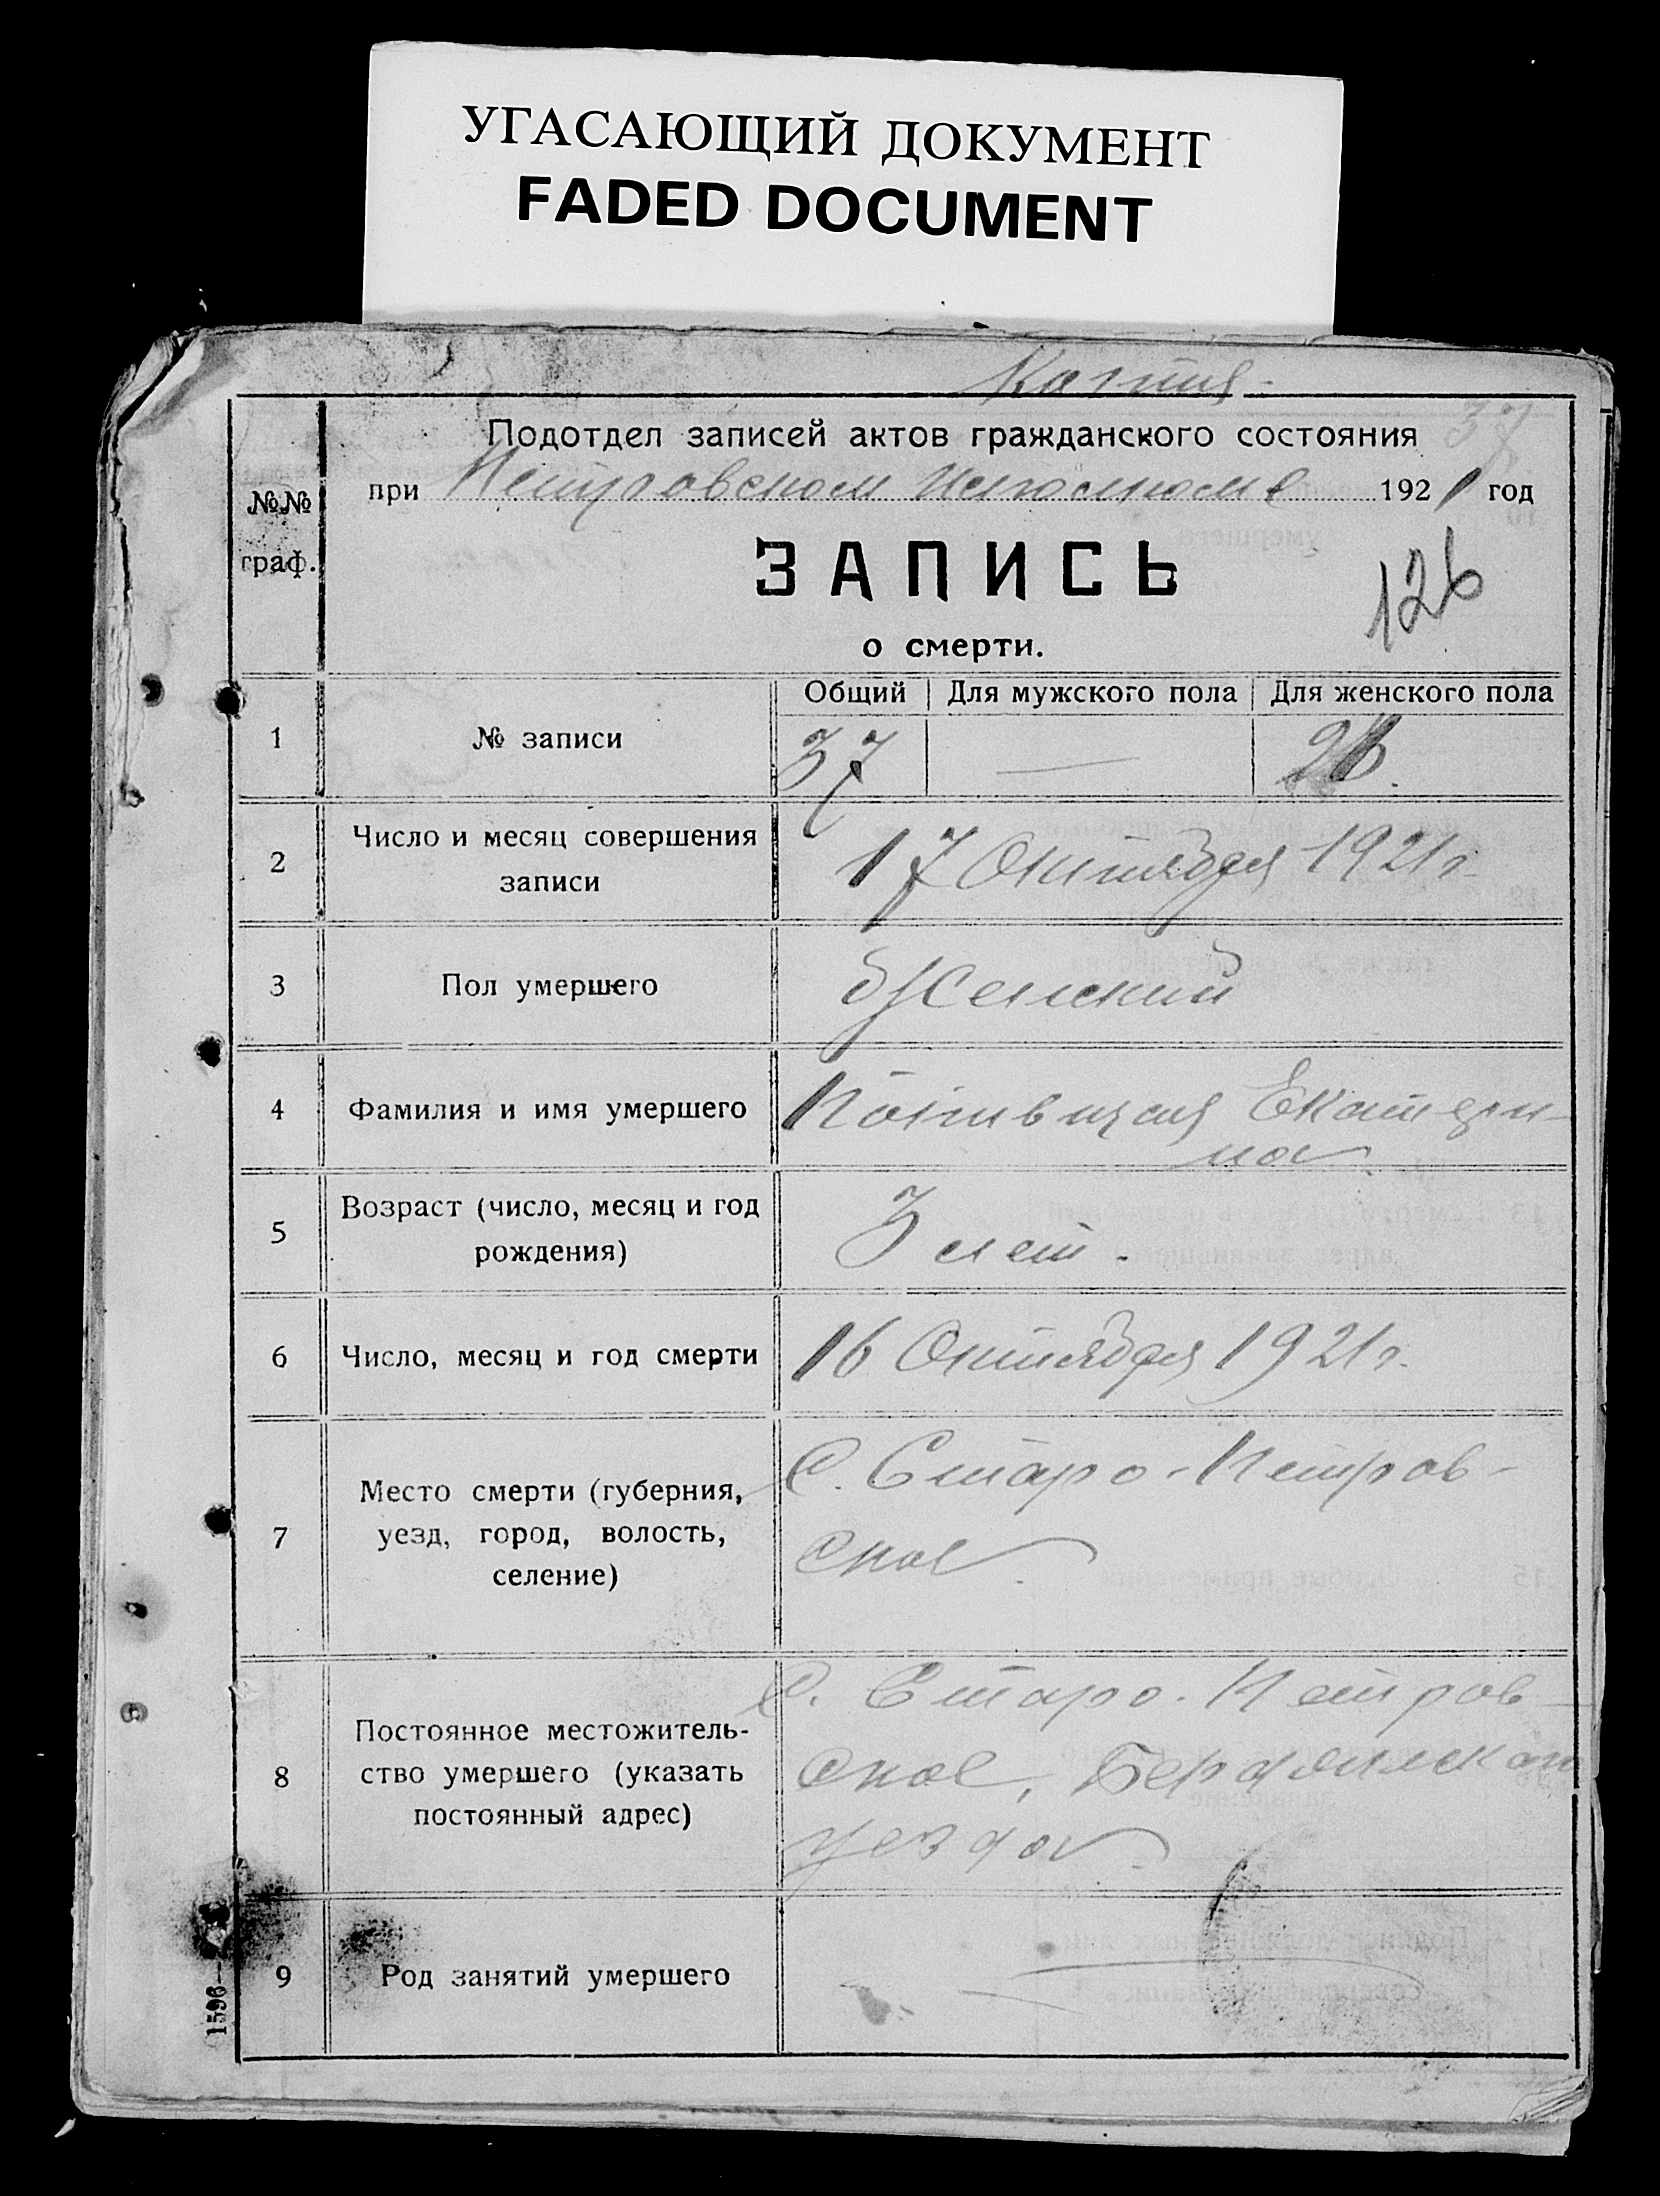 УГАСАЮЩИЙ ДОКУМЕНТ
FADED DOCUMENT
Копия.
Подотдел записей актов гражданского состояния 37
при Петровском Исполкоме 1921 год
№№
граф.
ЗАПИСЬ
126
о смерти.
Общий Для мужского пола Для женского пола
1 № записи 37 —
2 Число и месяц совершения
записи
17 Октября 1921 г.
3 Пол умершего Женский
4 Фамилия и имя умершего Екатери-
на
5 Возраст (число, месяц и год
рождения)
3 лет.
6 Число, месяц и год смерти 16 Октября 1921 г.
7 Место смерти (губерния,
уезд, город, волость,
селение)
С. Старо-Петров-
ское
8 Постоянное местожитель-
ство умершего (указать
постоянный адрес)
С. Старо-Петров-
ское, Бердянскаго
уезда
9 Род занятий умершего —
1596—